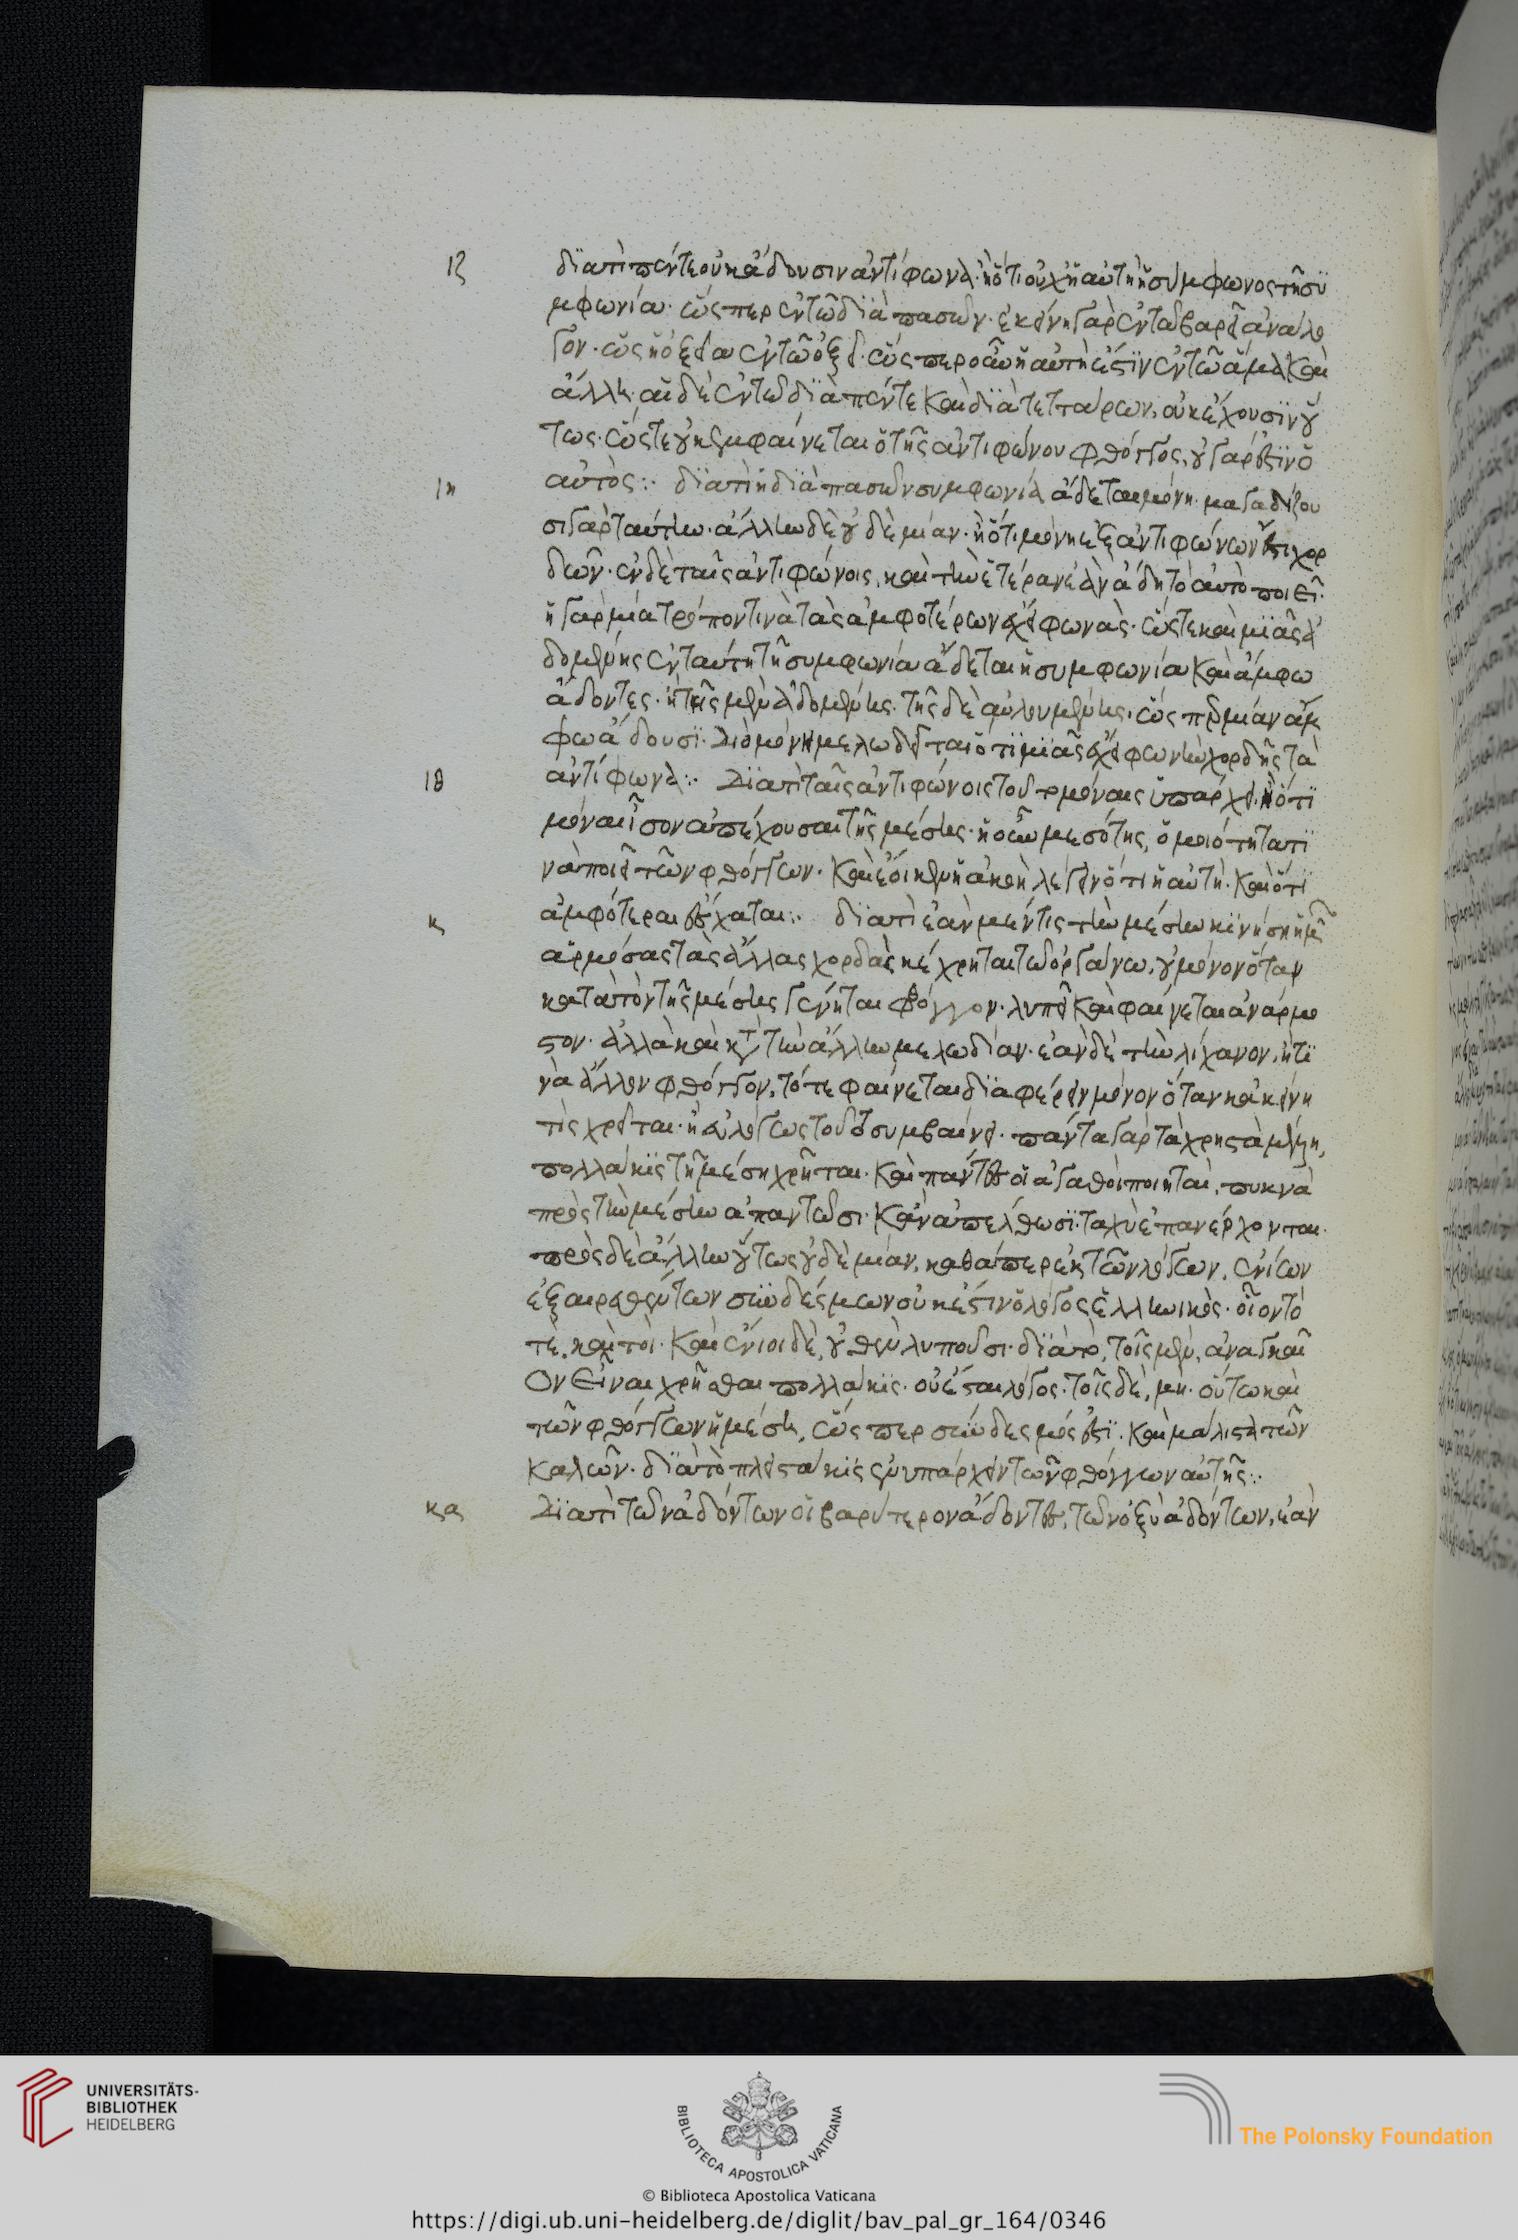 ιζ διατί πέντε οὐκ ἄδουσιν ἀντίφωνα· ἢ ὅτι οὐχ ἡ αὐτὴ ἡ σύμφωνος τῇ συ
μφωνία· ὥσπερ ἐν τῶ διὰ πασῶν· ἐκείνη γὰρ ἐν τῶ βαρεῖ ἀνάλο
γον· ὡς ἡ ὀξεία ἐν τῶ ὀξεῖ· ὥσπερ οὖν ἡ αὐτή ἐστιν ἐν τῶ ἅμα καὶ
ἄλλη· αἱ δὲ ἐν τῶ διὰ πέντε καὶ διὰ τεττάρων, οὐκ ἔχουσιν οὕ
τως· ὥστε οὐκ ἐμφαίνεται ὁ τῆς ἀντιφώνου φθόγγος, οὐ γάρ ἐστιν ὁ
ιη αὐτός:· διατί ἡ διὰ πασῶν συμφωνία ἄδεται μόνη· μαγαδίζου
σι γὰρ ταύτην· ἄλλην δὲ οὐδὲ μίαν· ἢ ὅτι μόνη ἐξ ἀντιφώνων ἐστὶ χορ
δῶν· ἐν δὲ ταῖς ἀντιφώνοις, καὶ τὴν ἑτέραν ἐὰν ἄδη τὸ αὐτὸ ποιεῖ·
ἡ γὰρ μία τρόπον τινὰ τὰς ἀμφοτέρων ἔχει φωνάς· ὥστε καὶ μιᾶς ἀ
δομένης ἐν ταύτη τῆ συμφωνία ἄδεται ἡ συμφωνία καὶ ἄμφω
ἄδοντες· ἢ τῆς μὲν ἀδομένης· τῆς δὲ αὐλουμένης· ὥσπερ μίαν ἄμ
φω ἄδουσι· διὸ μόνη μελωδεῖται ὅτι μιᾶς ἔχει φωνὴν χορδῆς τὰ
ιθ ἀντίφωνα:· Διατί ταῖς ἀντιφώνοις τοῦτο μόναις ὑπάρχει· ἢ ὅτι
μόναι ἴσον ἀπέχουσαι τῆς μέσης· ἡ οὖν μεσότης, ὁμοιότητά τι
να ποιεῖ τῶν φθόγγων· καὶ ἔοικεν ἡ ἀκοὴ λέγειν ὅτι ἡ αὐτὴ· καὶ ὅτι
κ ἀμφότεραι ἔσχαται:· διατί ἐὰν μέν τις τὴν μέσην κινήση ἡμῶν
ἁρμόσας τὰς ἄλλας χορδὰς κέχρηται τῶ ὀργάνω, οὐ μόνον ὅταν
κατὰ τὸν τῆς μέσης γένηται φθόγγον· λυπεῖ καὶ φαίνεται ἀνάρμο
στον· ἀλλὰ καὶ κατὰ τὴν ἄλλην μελωδίαν· ἐὰν δὲ τὴν λίχανον, ἤ τι
να ἄλλον φθόγγον, τότε φαίνεται διαφέρειν μόνον ὅταν κἀκείνη
τὶς χρεῖται· ἢ εὐλόγως τοῦτο συμβαίνει· πάντα γὰρ τὰ χρηστὰ μέλη,
πολλάκις τῆ μέση χρῆται· καὶ πάντες οἱ ἀγαθοὶ ποιηταὶ, πυκνὰ
πρὸς τὴν μέσην ἀπαντῶσι· κἂν ἀπέλθωσι· ταχὺ ἐπανέρχονται·
πρὸς δὲ ἄλλην οὕτως οὐδὲ μίαν, καθάπερ ἐκ τῶν λόγων, ἐνίων
ἐξαιρεθέντων συνδέσμων οὐκ ἔστιν ὁ λόγος ἑλληνικός· οἷον τό
τε, καὶ τοί· καὶ ἔνιοι δὲ, οὐθὲν λυποῦσι· διὰ τὸ, τοῖς μὲν, ἀναγκαῖ
ον εἶναι χρῆσθαι πολλάκις· οὐ ἔσται λόγος· τοῖς δὲ, μή· οὕτω καὶ
τῶν φθόγγων ἡ μέση, ὥσπερ σύνδεσμός ἐστι· καὶ μάλιστα τῶν
καλῶν· διὰ τὸ πλειστάκις ἐνυπάρχειν τῶν φθόγγων αὐτῆς:·
κα Διατί τῶν ἀδόντων οἱ βαρύτερον ἄδοντες, τῶν ὀξὺ ἀδόντων, ἐὰν
UNIVERSITÄTS-
BIBLIOTHEK
HEIDELBERG
BIBLIOTECA APOSTOLICA VATICANA
© Biblioteca Apostolica Vaticana
The Polonsky Foundation
https://digi.ub.uni-heidelberg.de/diglit/bav_pal_gr_164/0346